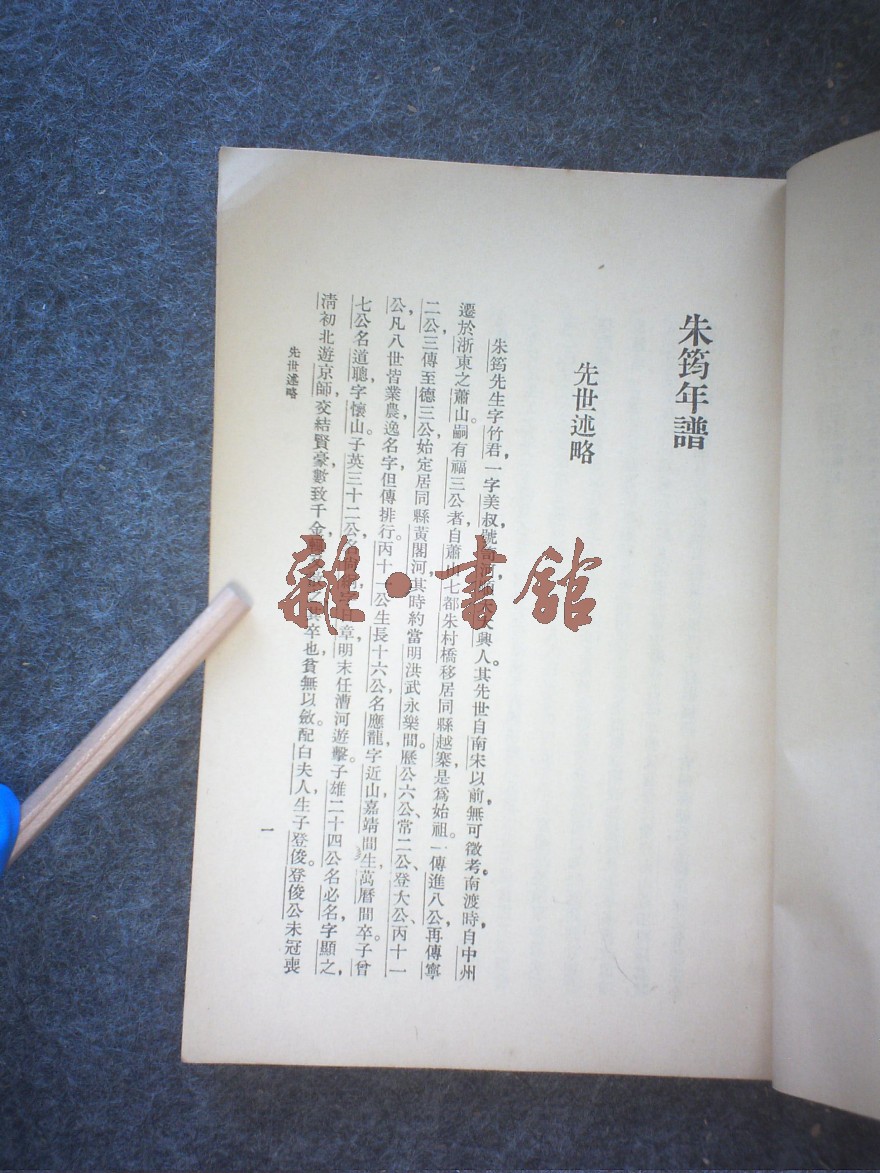 朱筠年譜
先世述略
朱筠先生字竹君，一字美叔，號大興人。其先世自南宋以前無可徵考。南渡時，自中州
遷於浙東之蕭山。嗣有福三公者，自蕭山七都朱村橋移居同縣越寨，是爲始祖。一傳進八公，再傳寧
二公，三傳至德三公，始定居同縣黃閣河，其時約當明洪武永樂間。歷公六公、常二公、登大公、丙十一
公，凡八世皆業農，逸名字，但傳排行。丙十一公生長十六公，名應龍，字近山，嘉靖間生，萬曆間卒。子曾
七公，名道聰，字懷山。子英三十二公，章，明末任漕河遊擊。子雄二十四公，名必名，字顯之，
淸初北遊京師，交結賢豪，數致千金，其卒也貧無以斂。配白夫人，生子登俊。登俊公未冠喪
先世述略
一
雜·書館